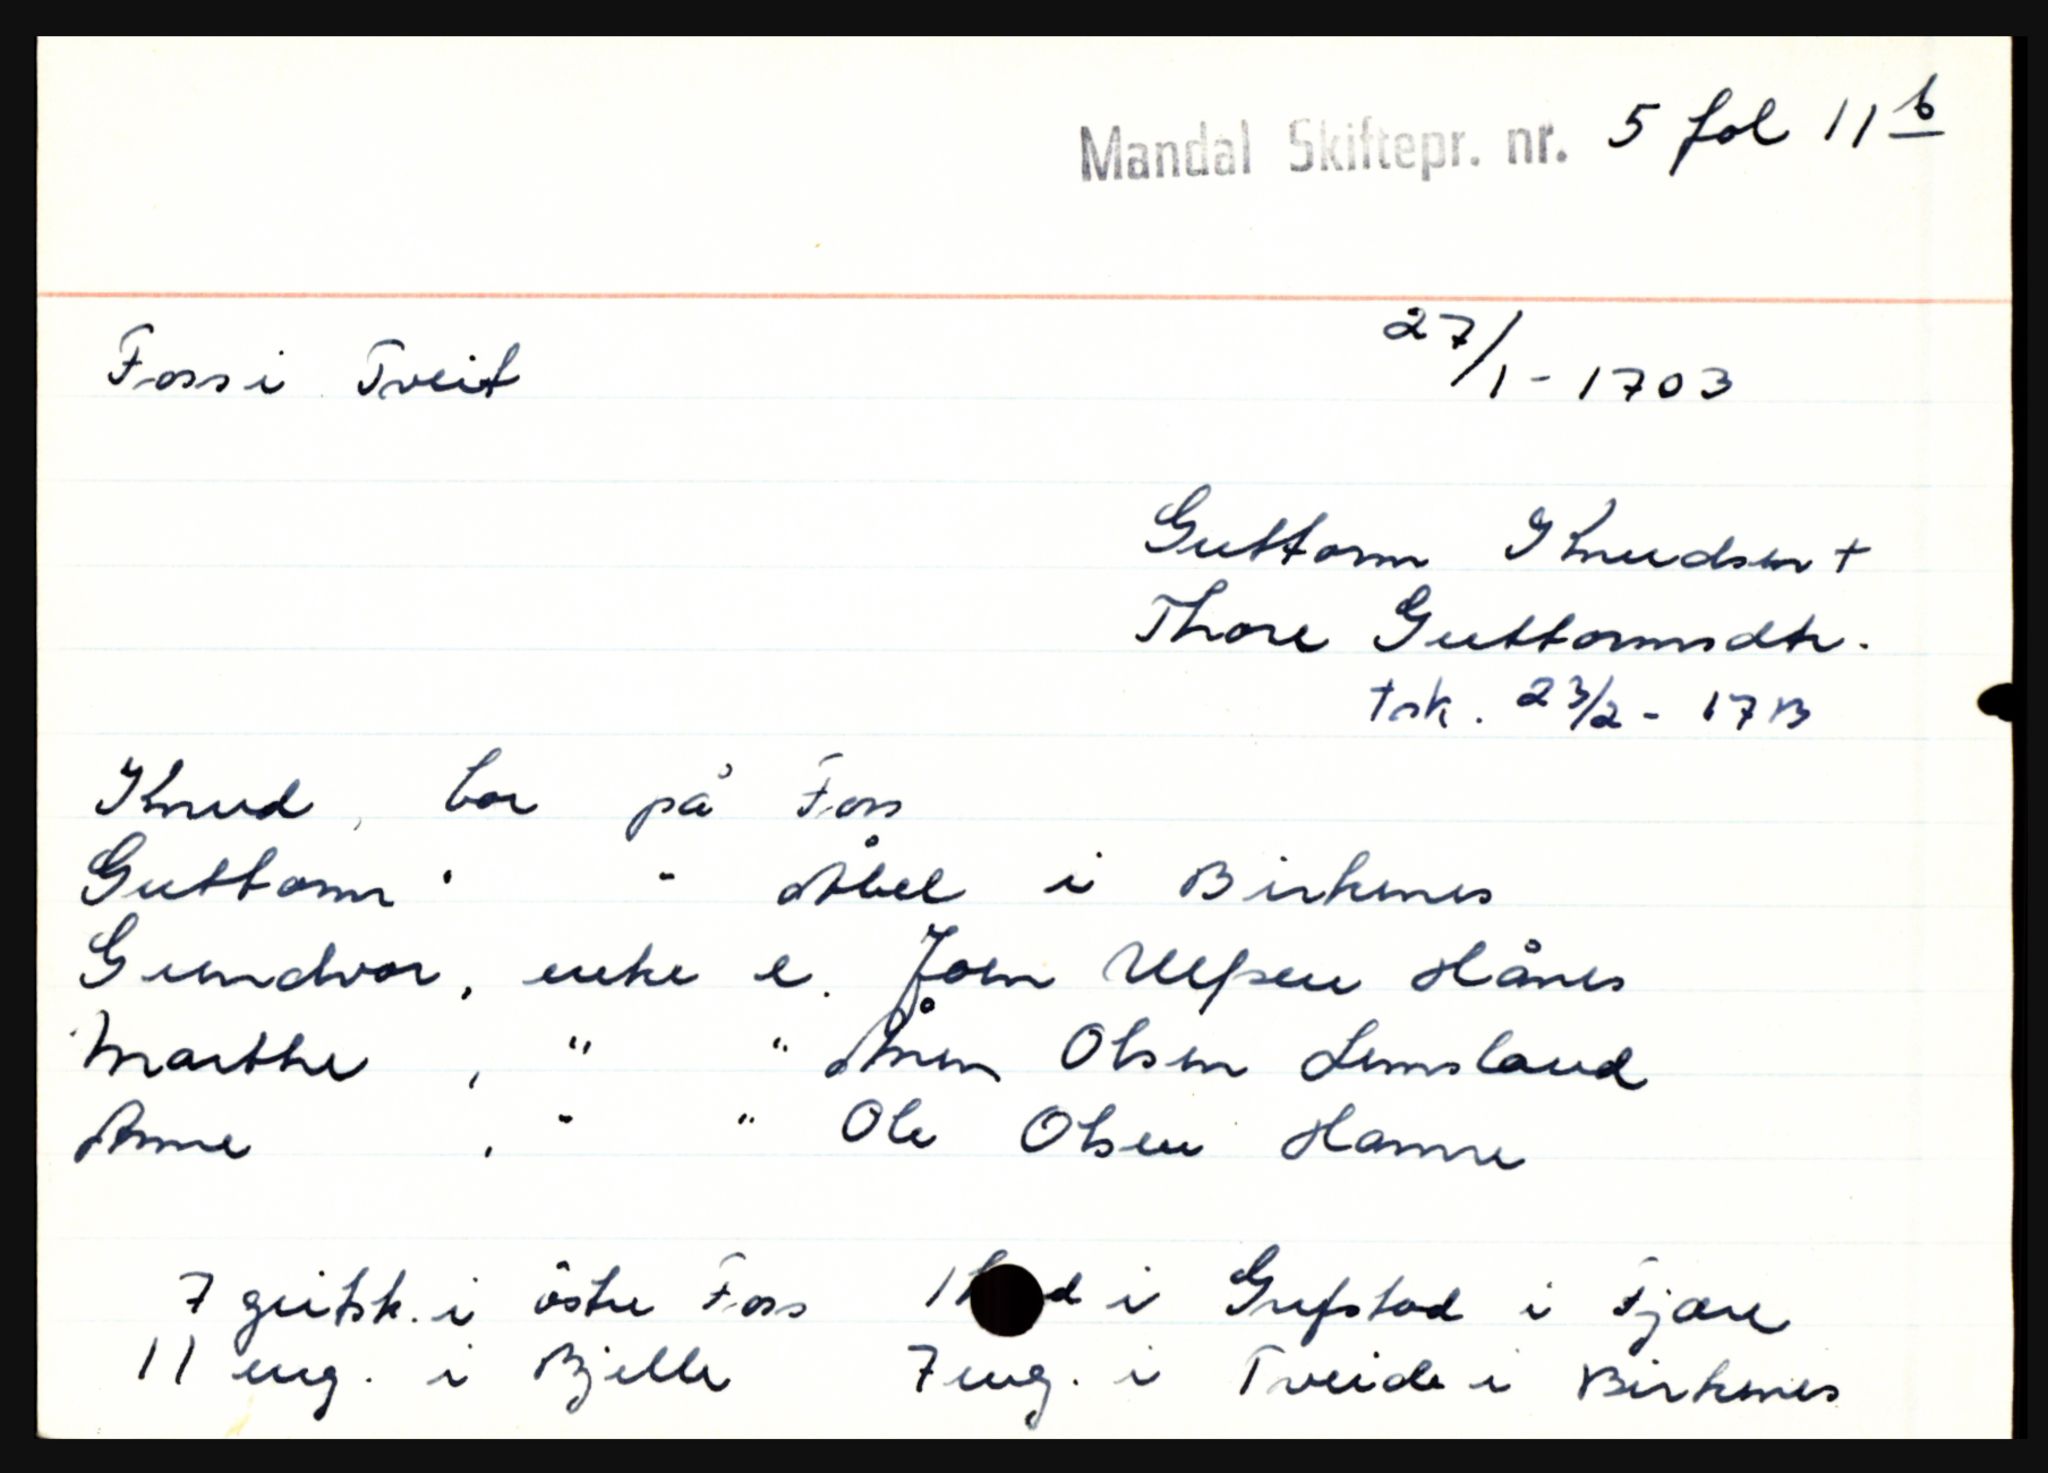 Mandal Skiftepr. nr. 5 fol 11 b
Foss i Tveit 27/1 - 1703
Guttorm Knudsen +
Thore Guttormsdtr.
tsk. 23/2 - 1713
Knud, bor på Foss
Guttorm " " Åbel i Birkenes
Gundvor, enke e. Joen Ulfsen Hånes
Marthe, " " Ånen Olsen Lemsland
Anne, " " Ole Olsen Hamre
7 geitsk. i östre Foss 1 i Grefstad i Fjære
11 eng. i Bjelle 7 eng. i Tveide i Birkenes